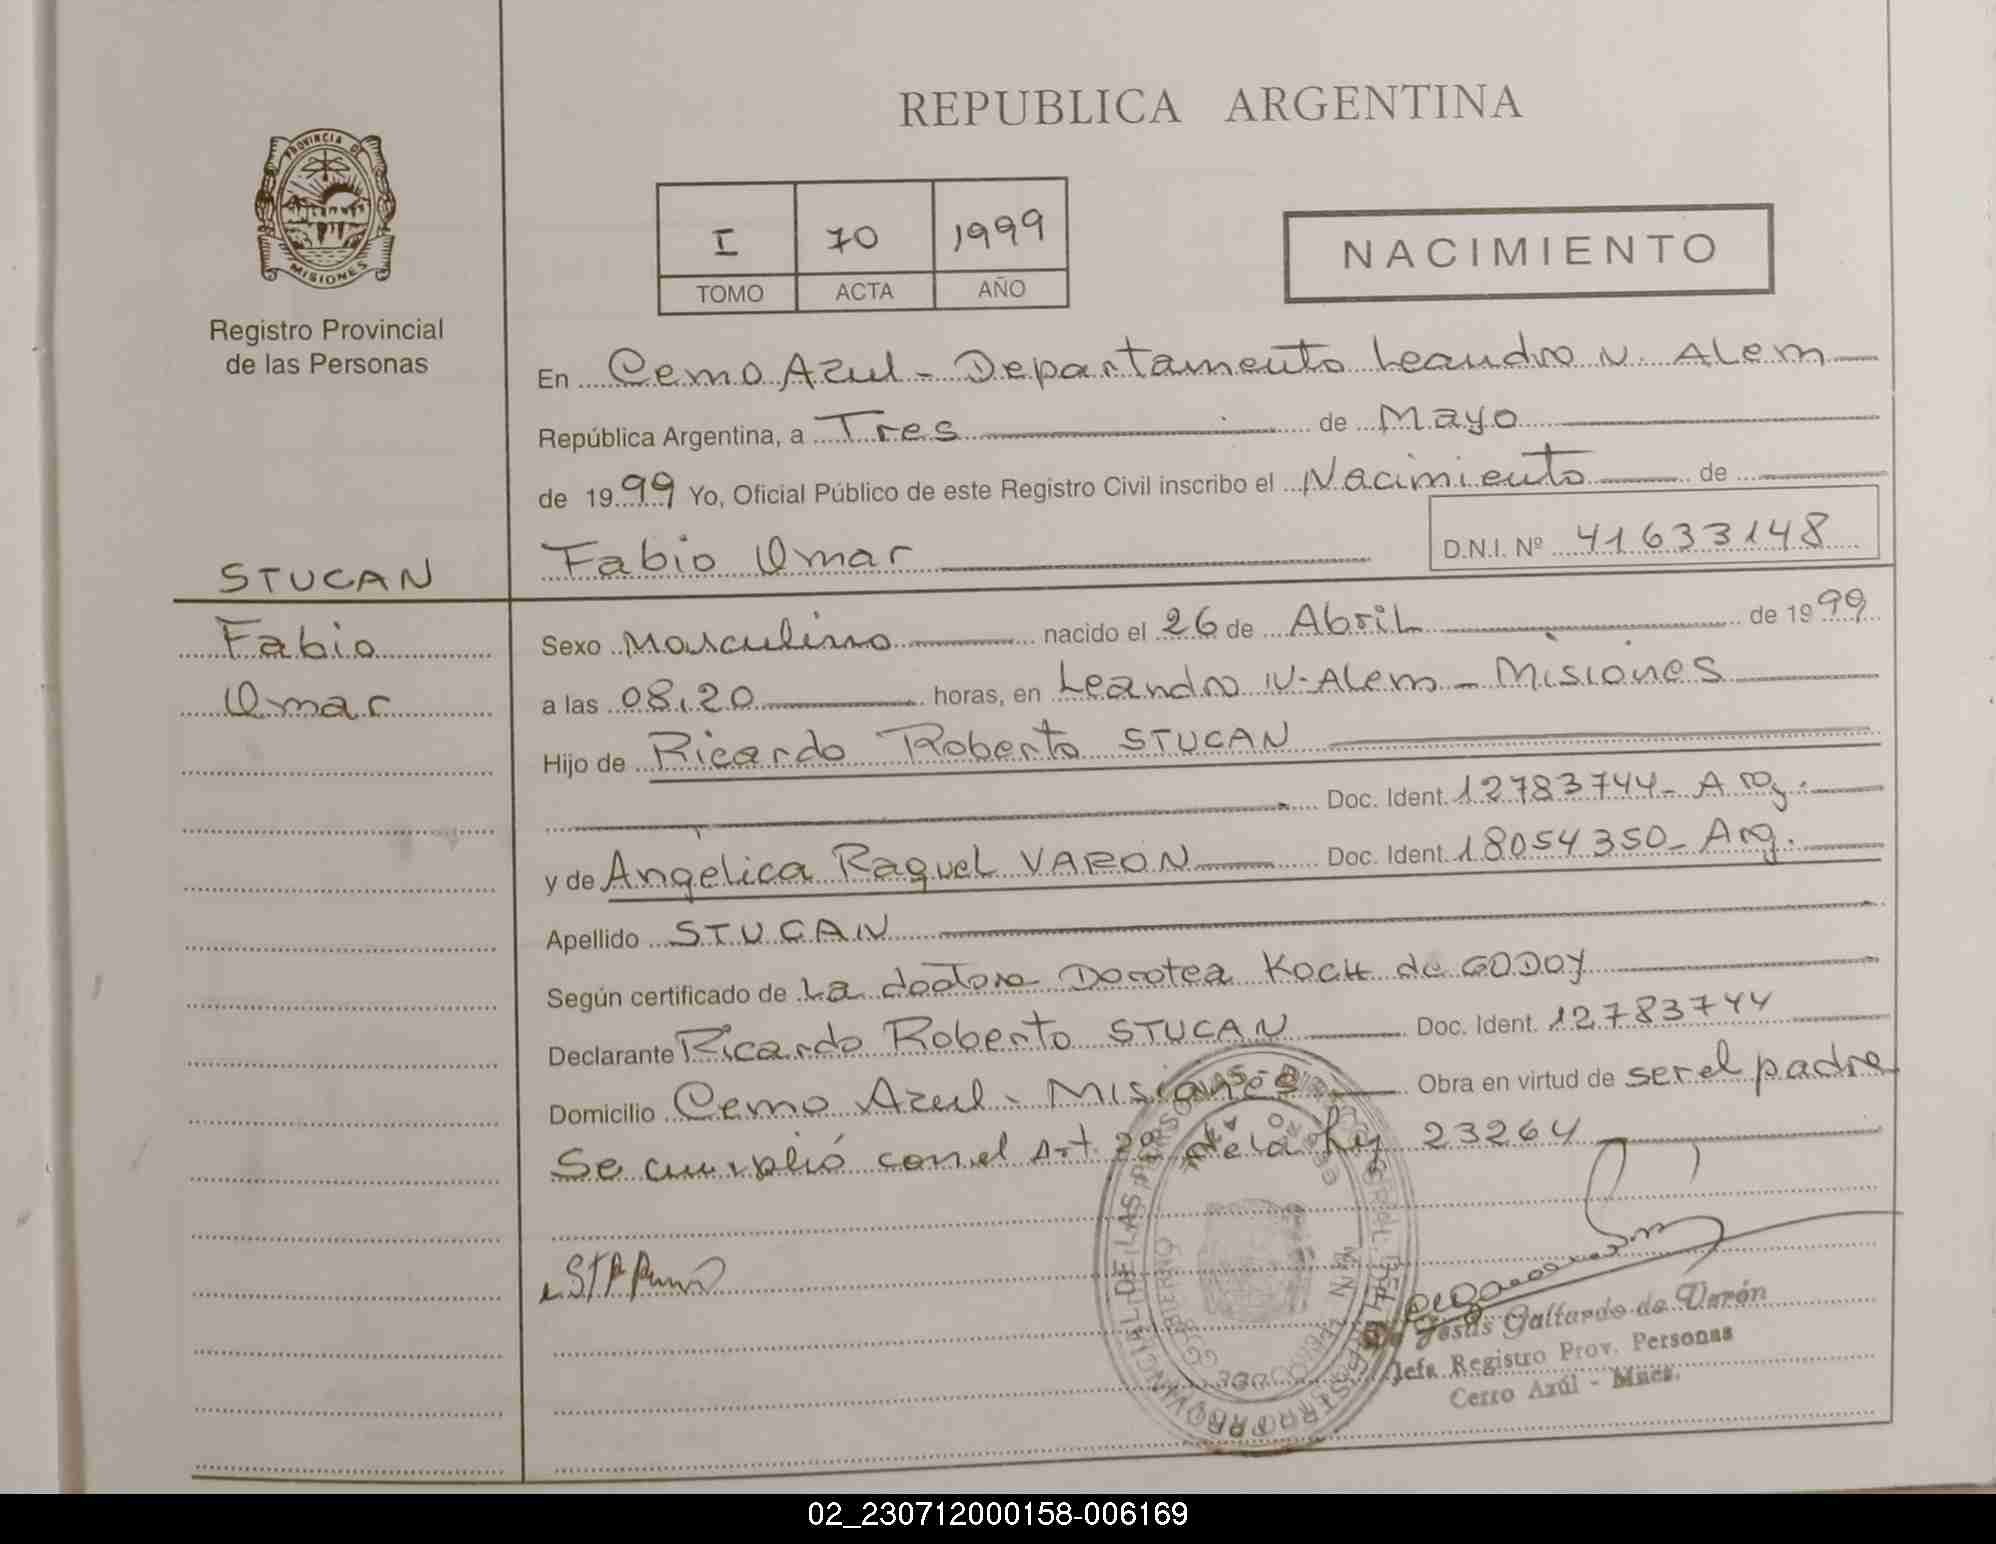 REPUBLICA ARGENTINA
PROVINCIA DE
MISIONES
Registro Provincial
de las Personas
I 70 1999
TOMO ACTA AÑO
NACIMIENTO
En Cerro Azul - Departamento Leandro N. Alem
República Argentina, a Tres de Mayo
de 1999 Yo, Oficial Público de este Registro Civil inscribo el Nacimiento de
Fabio Omar
D.N.I. Nº 41633148
STUCAN
Fabio
Omar
Sexo Masculino nacido el 26 de Abril de 1999
a las 08,20 horas, en Leandro N. Alem - Misiones
Hijo de Ricardo Roberto STUCAN
Doc. Ident. 12783744 - Arg.
y de Angelica Raquel VARON Doc. Ident. 18054350 - Arg.
Apellido STUCAN
Según certificado de La doctora Dorotea KOCH de GODOY
Declarante Ricardo Roberto STUCAN Doc. Ident. 12783744
Domicilio Cerro Azul - Misiones Obra en virtud de ser el padre
Se cumplió con el Art. 2º de la Ley 23264
Jesús Gallardo de Varón
Jefa Registro Prov. Personas
Cerro Azúl - Mnes.
02_230712000158-006169